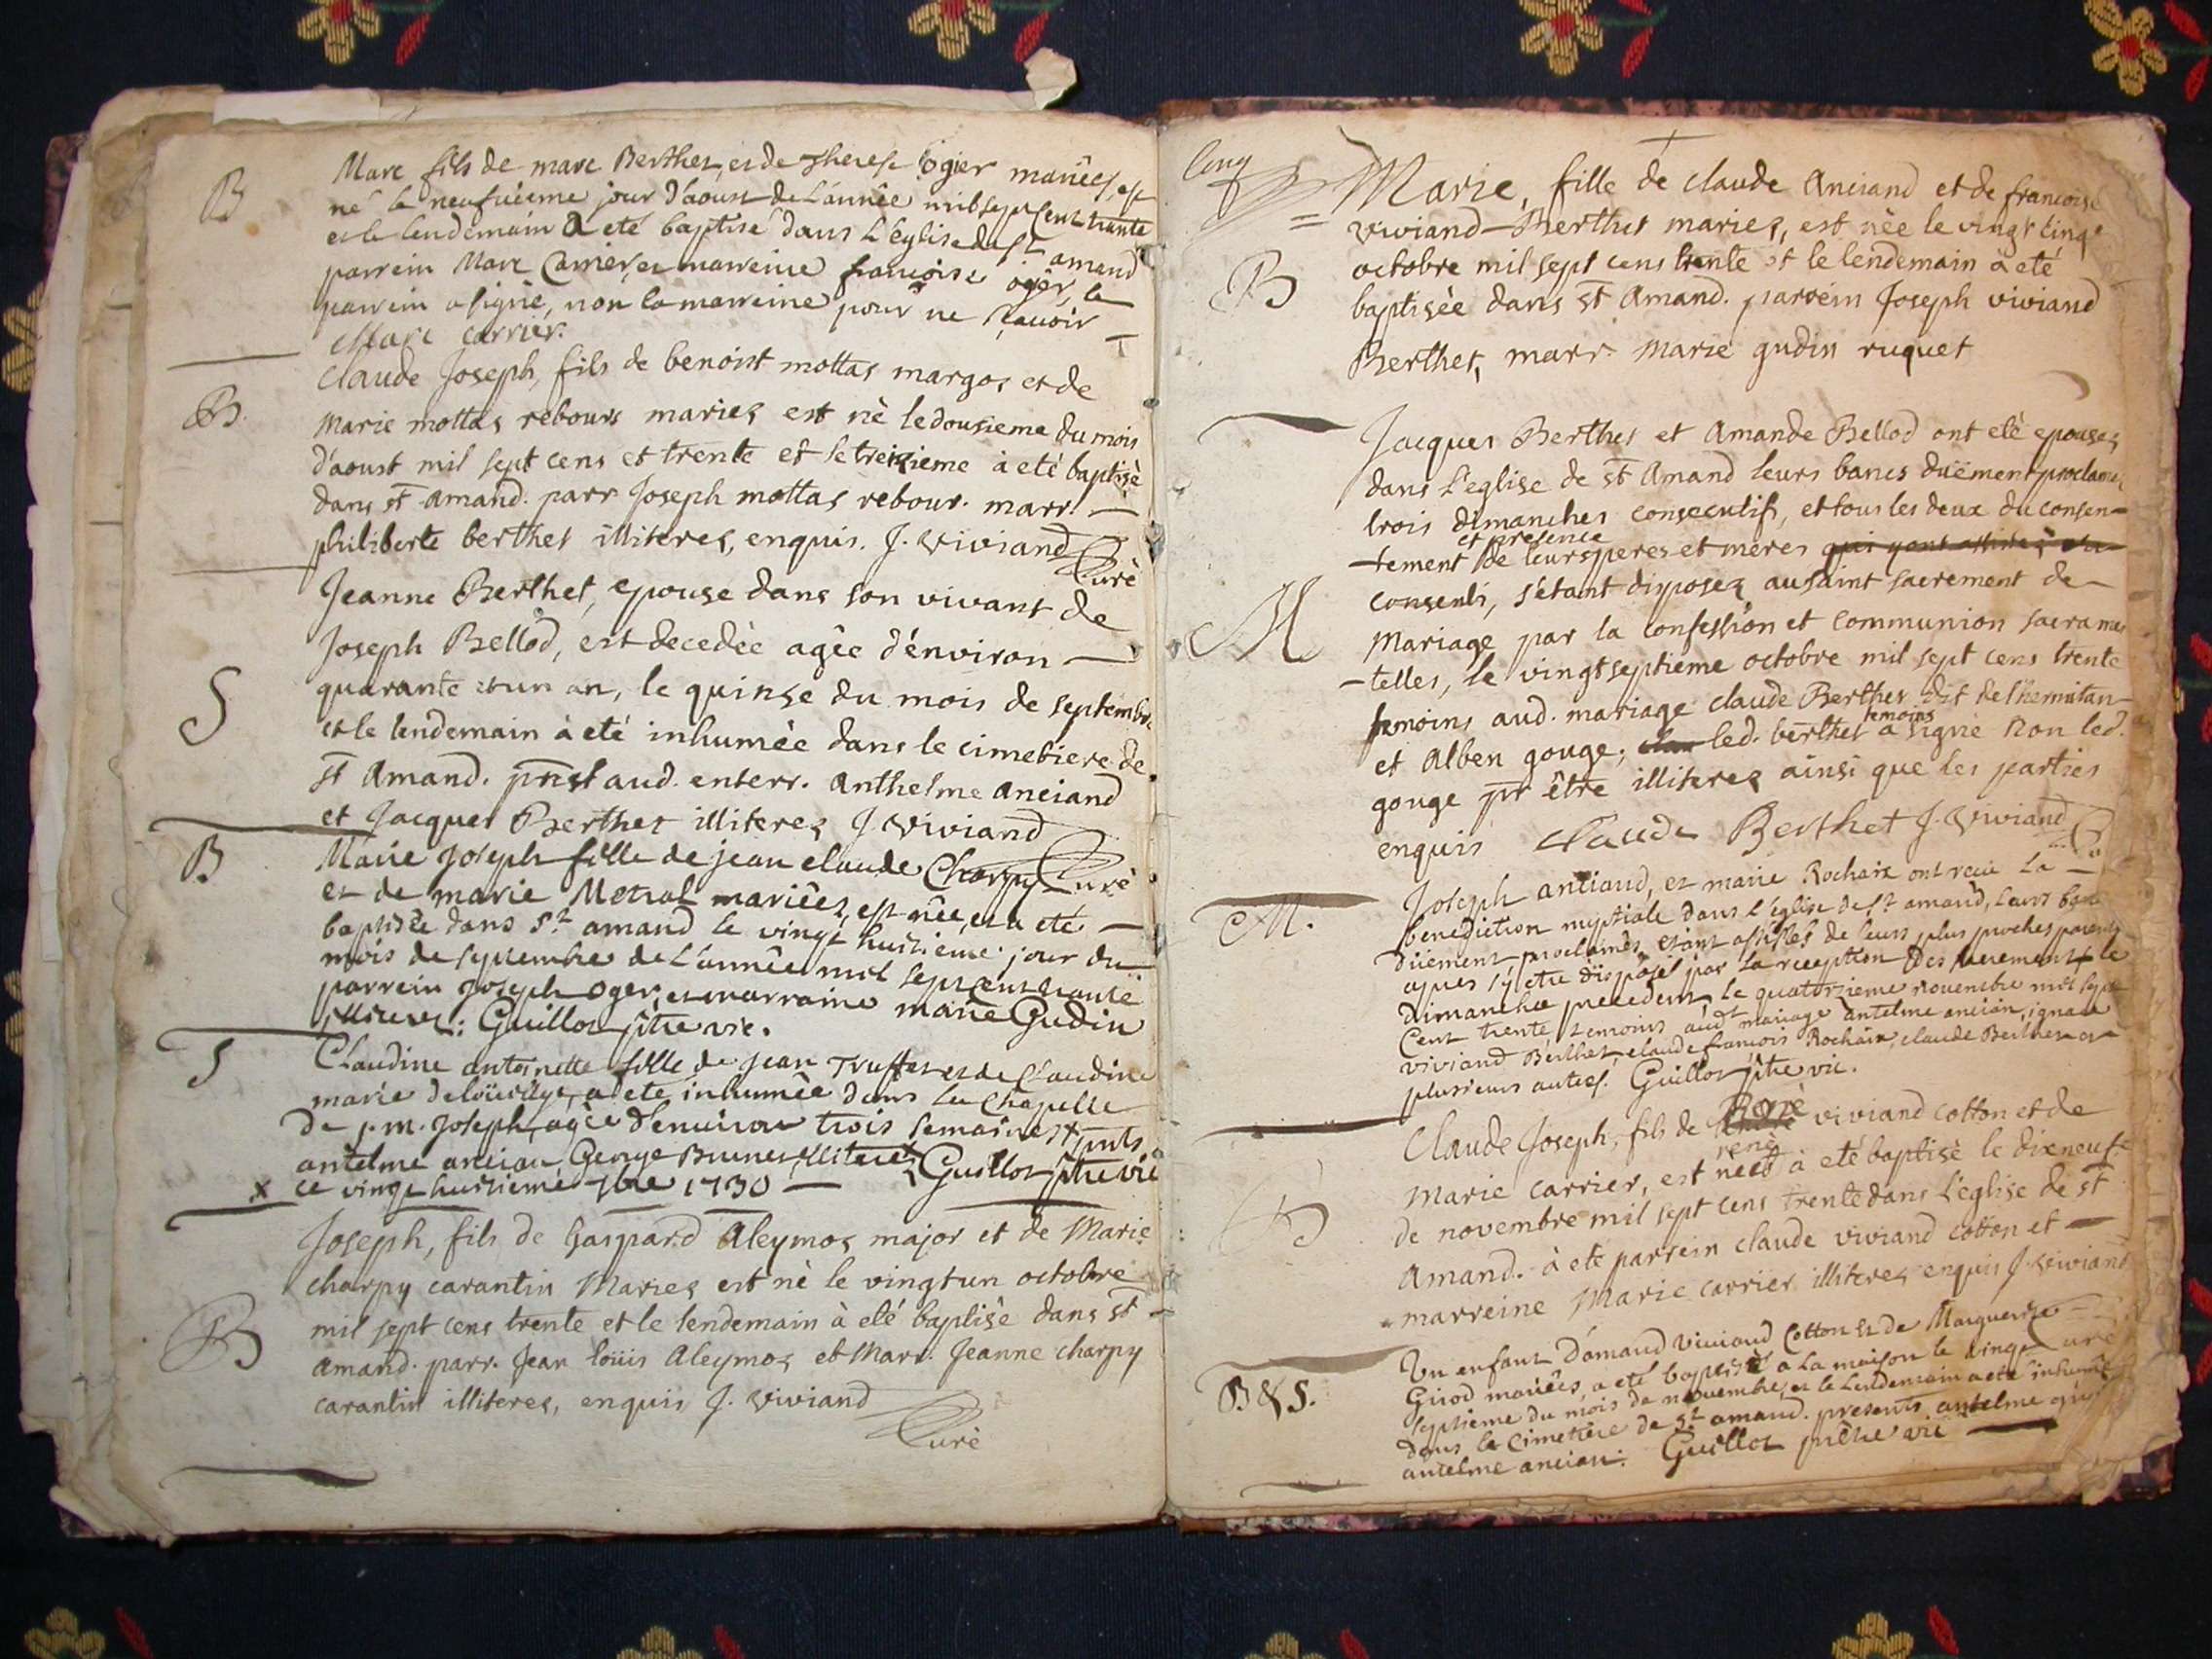 B
Marc fils de marc Berthet, et de Therese ogier mariés, est
né le neufuieme jour d'aoust de l'année mil sept cent trante
et le lendemain a eté baptisé dans l'église de St amand
parrein Marc Carrier, et marreine francoise ogér, le
parrein a signé, non la marreine pour ne scavoir —
Marc carrier.
B.
Claude Joseph, fils de benoist mottas margos et de
Marie mottas rebours mariez est nè le dousieme du mois
d'aoust mil sept cens et trente et le treizieme à eté baptisè
dans st amand. parr Joseph mottas rebour. marr. —
philiberte berthet illiteres, enquis. J. Viviand
Curè
S
Jeanne Berthet, epouse dans son vivant de
Joseph Bellod, est decedèe agèe d'environ —
quarante et un an, le quinse du mois de septembre
et le lendemain à eté inhumèe dans le cimetiere de
st Amand. pnst aud. enterr. Anthelme Anciand
et Jacques Berthet illiterez J. Viviand
Curè
B
Marie Joseph fille de jean claude Charpy
et de marie Metral mariées, est née, et a eté —
baptisée dans St amand le vingt huitieme jour du
mois de septembre de l'année mil sept cent trante
parrein Joseph Oger, et marraine marie Gudin
illiteres: Guillot ptre vic.
S
Claudine antoinette fille de Jean Truffet et de Claudine
marie a eté inhumée dans la Chapelle
de j. m. Joseph, agée d'enuiron trois semaines x pnts
antelme ancian, George Brunet illiterez Guillot ptre vic
x ce vingt huitieme 7bre 1730 —
B
Joseph, fils de Gaspard Aleymoz major et de Marie
charpy carantin Mariez est nè le vingt un octobre
mil sept cens trente et le lendemain à eté baptisè dans st —
Amand. parr. Jean loüis Aleymoz et Marr. Jeanne charpy
carantin illiteres, enquis J. Viviand
Curè
cinq
B
Marie, fille de claude Anciand et de francoise
viviand-Berthet mariez, est nèe le vingt cinq
octobre mil sept cens trente et le lendemain à eté
baptisèe dans st Amand. parrein Joseph viviand
Berthet, marr. Marie gudin ruquet
M
Jacques Berthet et Amande Bellod ont etè epousez
dans l'eglise de st Amand leurs bancs duëment proclamez
trois dimanches consecutifs, et tous les deux du consen-
et presence
-tement de leurs peres et meres qui y ont assisté
consenti, s'étant disposez au saint sacrement de —
Mariage par la confession et communion sacramen
-telles, le vingt septieme octobre mil sept cens trente
temoins aud. mariage claude Berthet dit de l'hermitan —
temoins
et Alben gouge; led. berthet a signè Non led.
gouge pr être illiterez ainsi que les parties
enquis Claude Berthet J. Viviand
M.
Joseph antiaud, et marie Rochaix ont recu la —
benediction nuptiale dans l'église de St amand, leurs bans
düement proclamés, etant assistés de leurs plus proches parents
apres s'y etre disposés par la reception des sacrements le
dimanche precedent, le quatorzieme novembre mil sept
Cent trente temoins audt mariage antelme ancian, ignace
viviand Berthet, claude francois Rochaix, claude Berthet et
plusieurs autres. Guillot ptre vic.
B
Renè
Claude Joseph, fils de viviand cotton et de
Marie carrier, est à eté baptisè le dix neuf
de novembre mil sept cens trente dans l'eglise de st
Amand. à eté parrein claude viviand cotton et —
marreine Marie carrier illiterez enquis J. Viviand
Curè
B & S.
Un enfant d'amand viuiand Cotton et de Marguerite
Girod mariées, a eté baptisé a la maison le vingt
septieme du mois de nouembre, et le lendemain a eté inhumé
dans le Cimetiere de St amand. presents antelme
antelme ancian. Guillot prêtre vic —